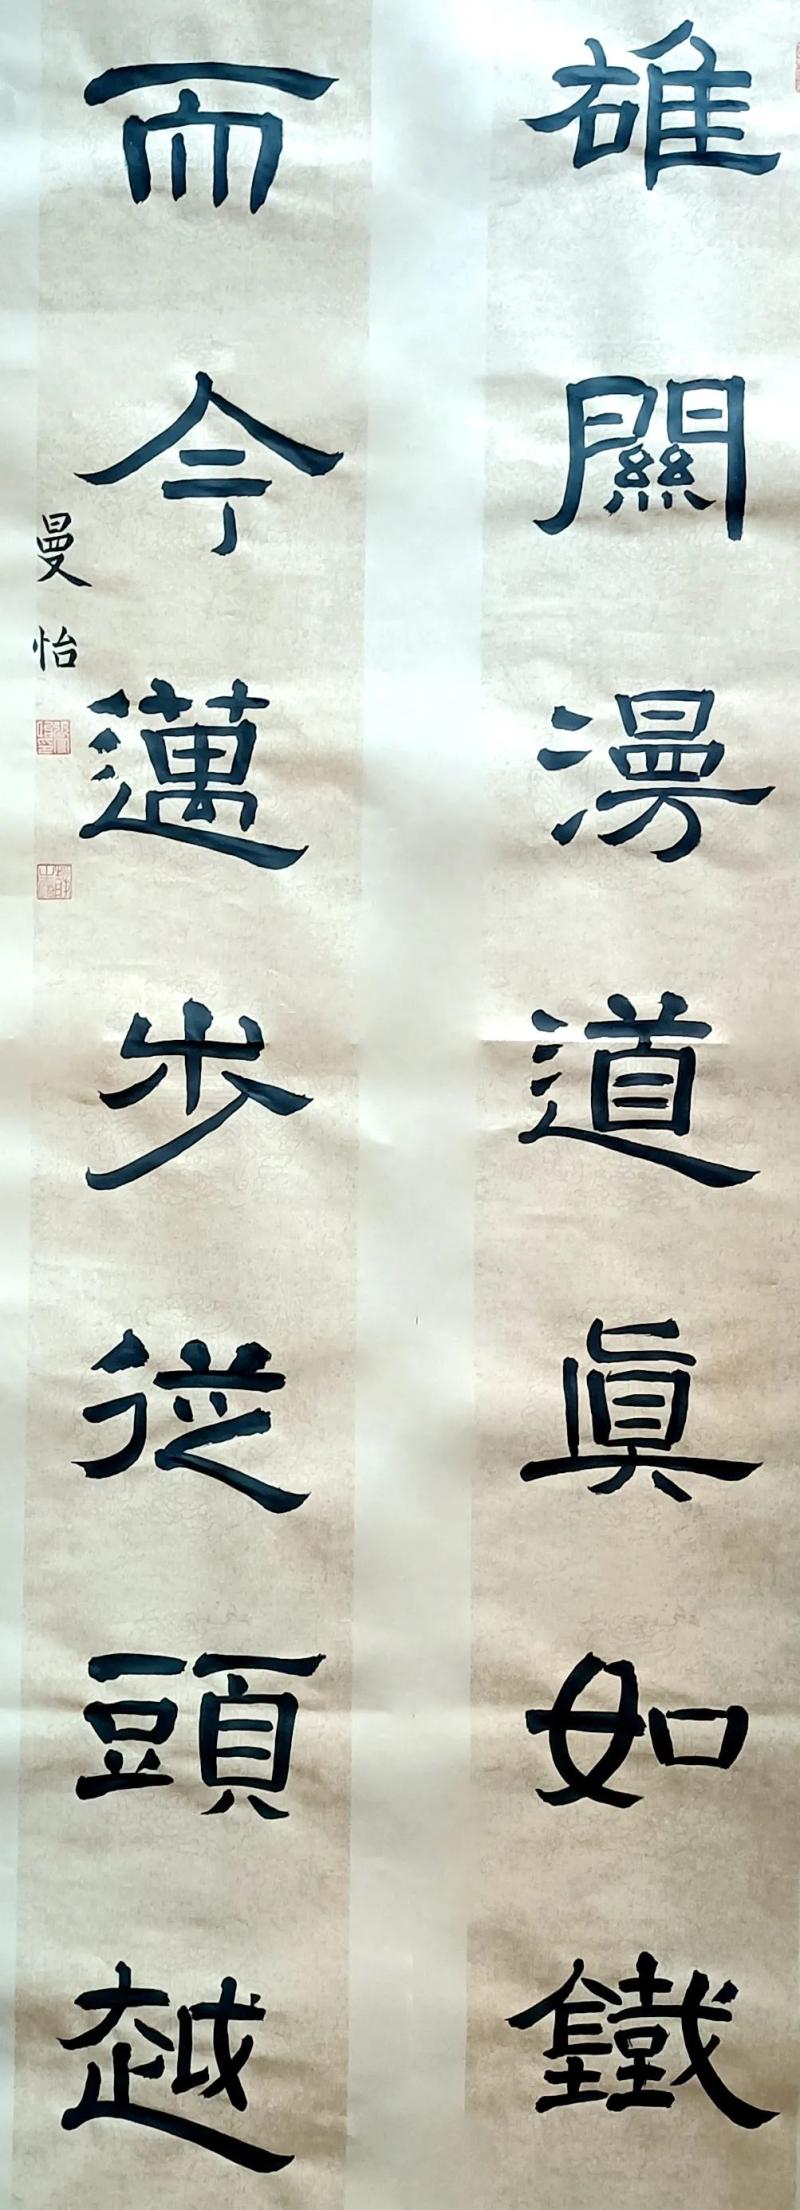 雄關漫道眞如鐵
而今邁步從頭越
曼怡